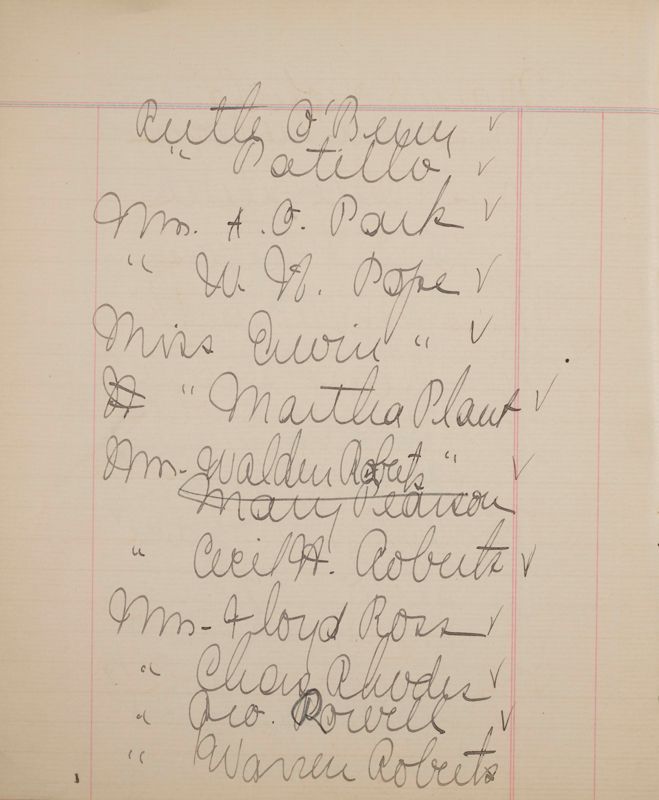 Ruth O'Berry ✓
" Patillo ✓
Mrs. A. O. Park ✓
" W. N. Pope ✓
Miss Erwin " ✓
" Martha Plant ✓
Mrs. Walden Roberts " ✓
Mary Pearson
" Cecil H. Roberts ✓
Mrs. Floyd Ross ✓
" Chas Rhodes ✓
" Geo. Rowell ✓
" Warren Roberts